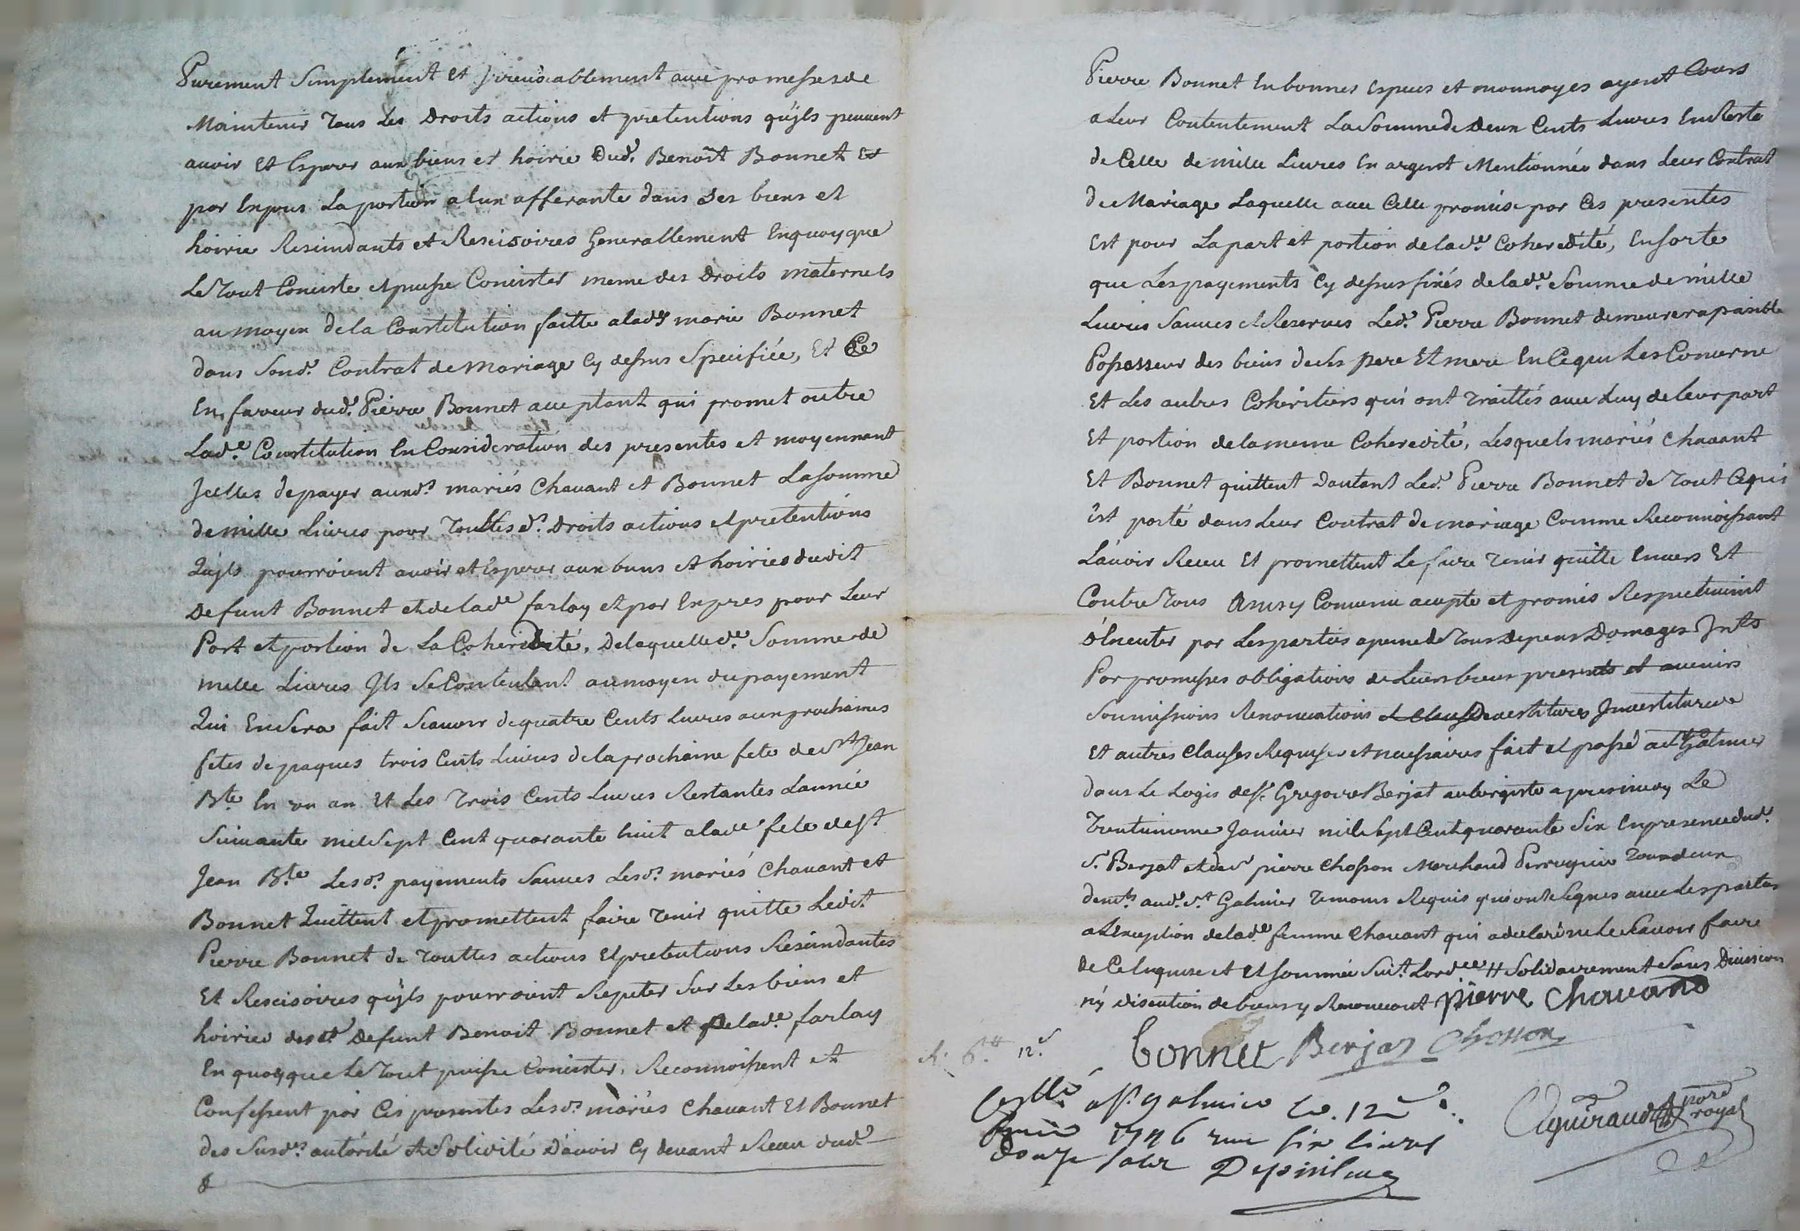 Purement Simplement et Irrevocablement avec promesses de
Maintenir Tous les Droits actions et pretentions quÿls peuvent
avoir Et Esperer aux biens et hoirie Dud. Benoît Bonnet Et
par Expres La portion a lun afferante dans Ses biens et
hoirie Resindants et Rescisoires Generallement Enquoy que
Le Tout Consiste et puisse Consister meme des Droits maternels
au moyen de la Constitution faitte a lad. marie Bonnet
dans Sond. Contrat de Mariage Cy dessus Specifiée, Et Ce
En faveur dud. Pierre Bonnet acceptant qui promet outre
Lad.e Constitution En Consideration des presentes et moyennant
Jcelles de payer auxd.s mariés Chavant et Bonnet La somme
de mille Livres pour Touttes d.s Droits actions et pretentions
Quÿls pourroient avoir et Esperer aux biens et hoiries dudit
Defunt Bonnet et de lad.e farlay et par Expres pour Leur
Part et portion de La Coheredité, De laquelle d.e Somme de
mille Livres Jls Se Contentent au moyen du payement
Qui En Sera fait Scavoir de quatre Cents Livres aux prochaines
fetes de paques trois Cents Livres de la prochaine fete de St Jean
Bte En un an Et Les Trois Cents Livres Restantes Lannée
Suivante mil Sept Cent quarante huit a lad.e fete de St
Jean B.te Lesd.s payements Sauves Lesd.s mariés Chavant et
Bonnet Quittent et promettent faire Tenir quitte Ledit
Pierre Bonnet de Touttes actions Et pretentions Resindantes
Et Rescisoires quÿls pourroient Repeter Sur Les biens et
hoiries desd. Defunt Benoit Bonnet et de lad.e farlay
En quoy que Le Tout puisse Consister, Reconnoissent et
Confessent par Ces presentes Lesd.s mariés Chavant Et Bonnet
des Susd.s autorité et Solidité D'avoir Cy devant Receu dud.
Pierre Bonnet En bonnes Especes et monnoyes ayant Cours
a Leur Contentement La Somme de Deux Cents Livres En Reste
de Celle de mille Livres En argent Mentionnée dans Leur Contrat
de Mariage Laquelle avec Celle promise par Ces presentes
Est pour La part et portion de lad.e Coheredité, En sorte
que Les payements Cy dessus fixés de lad.e Somme de mille
Livres Sauves et Reserves Led. Pierre Bonnet demeurera paisible
Possesseur des biens de Ses Pere Et mere En Ce qui Les Concerne
Et Les autres Coheritiers qui ont Traittés avec Luy de leur part
Et portion de la meme Coheredité, Lesquels mariés Chavant
Et Bonnet quittent Dautant Led. Pierre Bonnet de Tout Ce qui
Est porté dans Leur Contrat de mariage Comme Reconnoissant
Lavoir Receu Et promettent Le faire Tenir quitte Envers Et
Contre Tous Ainsy Convenu accepté et promis Respectivement
Executer par Les parties a peine de Tous Depens Domages Jnts
Par promesses obligations de Leurs biens presents et avenirs
Soumissions Renonciations Devestitures Jnvestitures
Et autres Clauses Requises et necessaires fait et passé a St Galmier
dans Le Logis de Sr. Gregoire Berjat aubergiste Le
Trentunieme Janvier mil Sept Cent quarante Six En presence dud.
Sr. Berjat et de Sr pierre Chosson Marchand Perruquier
dem.ts aud. St Galmier Temoins Requis qui ont Signes avec Les parties
a L'exception de lad.e femme Chavant qui a declaré ne Le Scavoir faire
de Ce Enquise et Et Sommée Suit Lord.ce # Solidairement Sans Division
ny discution de biens y Renoncant pierre Chavant
R. 6.tt 12.s
bonnet Berjat Chosson
Cont.lé a St galmier Le 12
1746 reçu six livres
douze sols Depinlieu
Aguiraud no.re royal